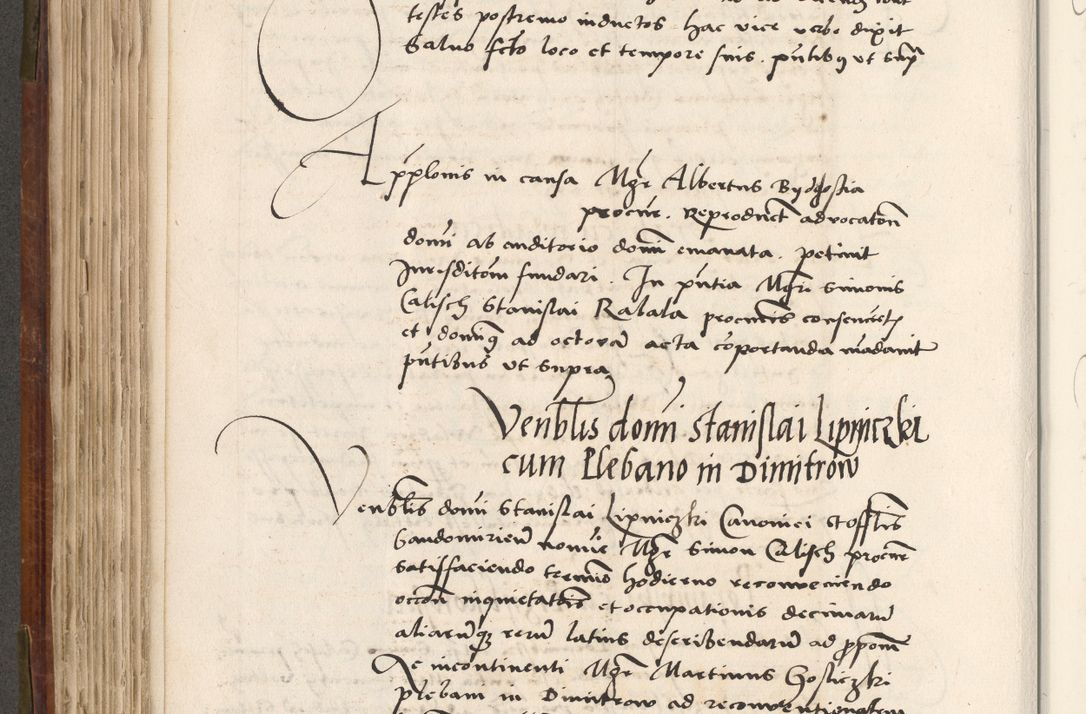 testes postremo inductos hac vice verbo dixit
Salvo scto loco et tempore suis . pntibq ut supra
Applonis in causa Mgr Albertus Bydgostia
procur. Reproduct advocaton
domi ab auditorio domi emanata . petiuit
Jurisditom fundari . In pntia Mgri simonis
Calisch Stanislai Rabala procuris consencietis
et domiq ad octova acta coportanda madauit
pntibus ut supra
Venblis domi Stanislai Lipniczki
cum Plebano in Dimitrow
Venblis domi Stanislai Lipniczki Canonici et offlis
Sandomirien nomie Mgr Simon Calisch procur
satisfaciendo termio hodierno reconveniendo
occon inquietatois et occupationis decimaru
aliarumq reru latius describendaru ad ppom
Ac incontinenti Mgr Martinus Gosliczki
plebani in Dimitrow ad reconventionalem